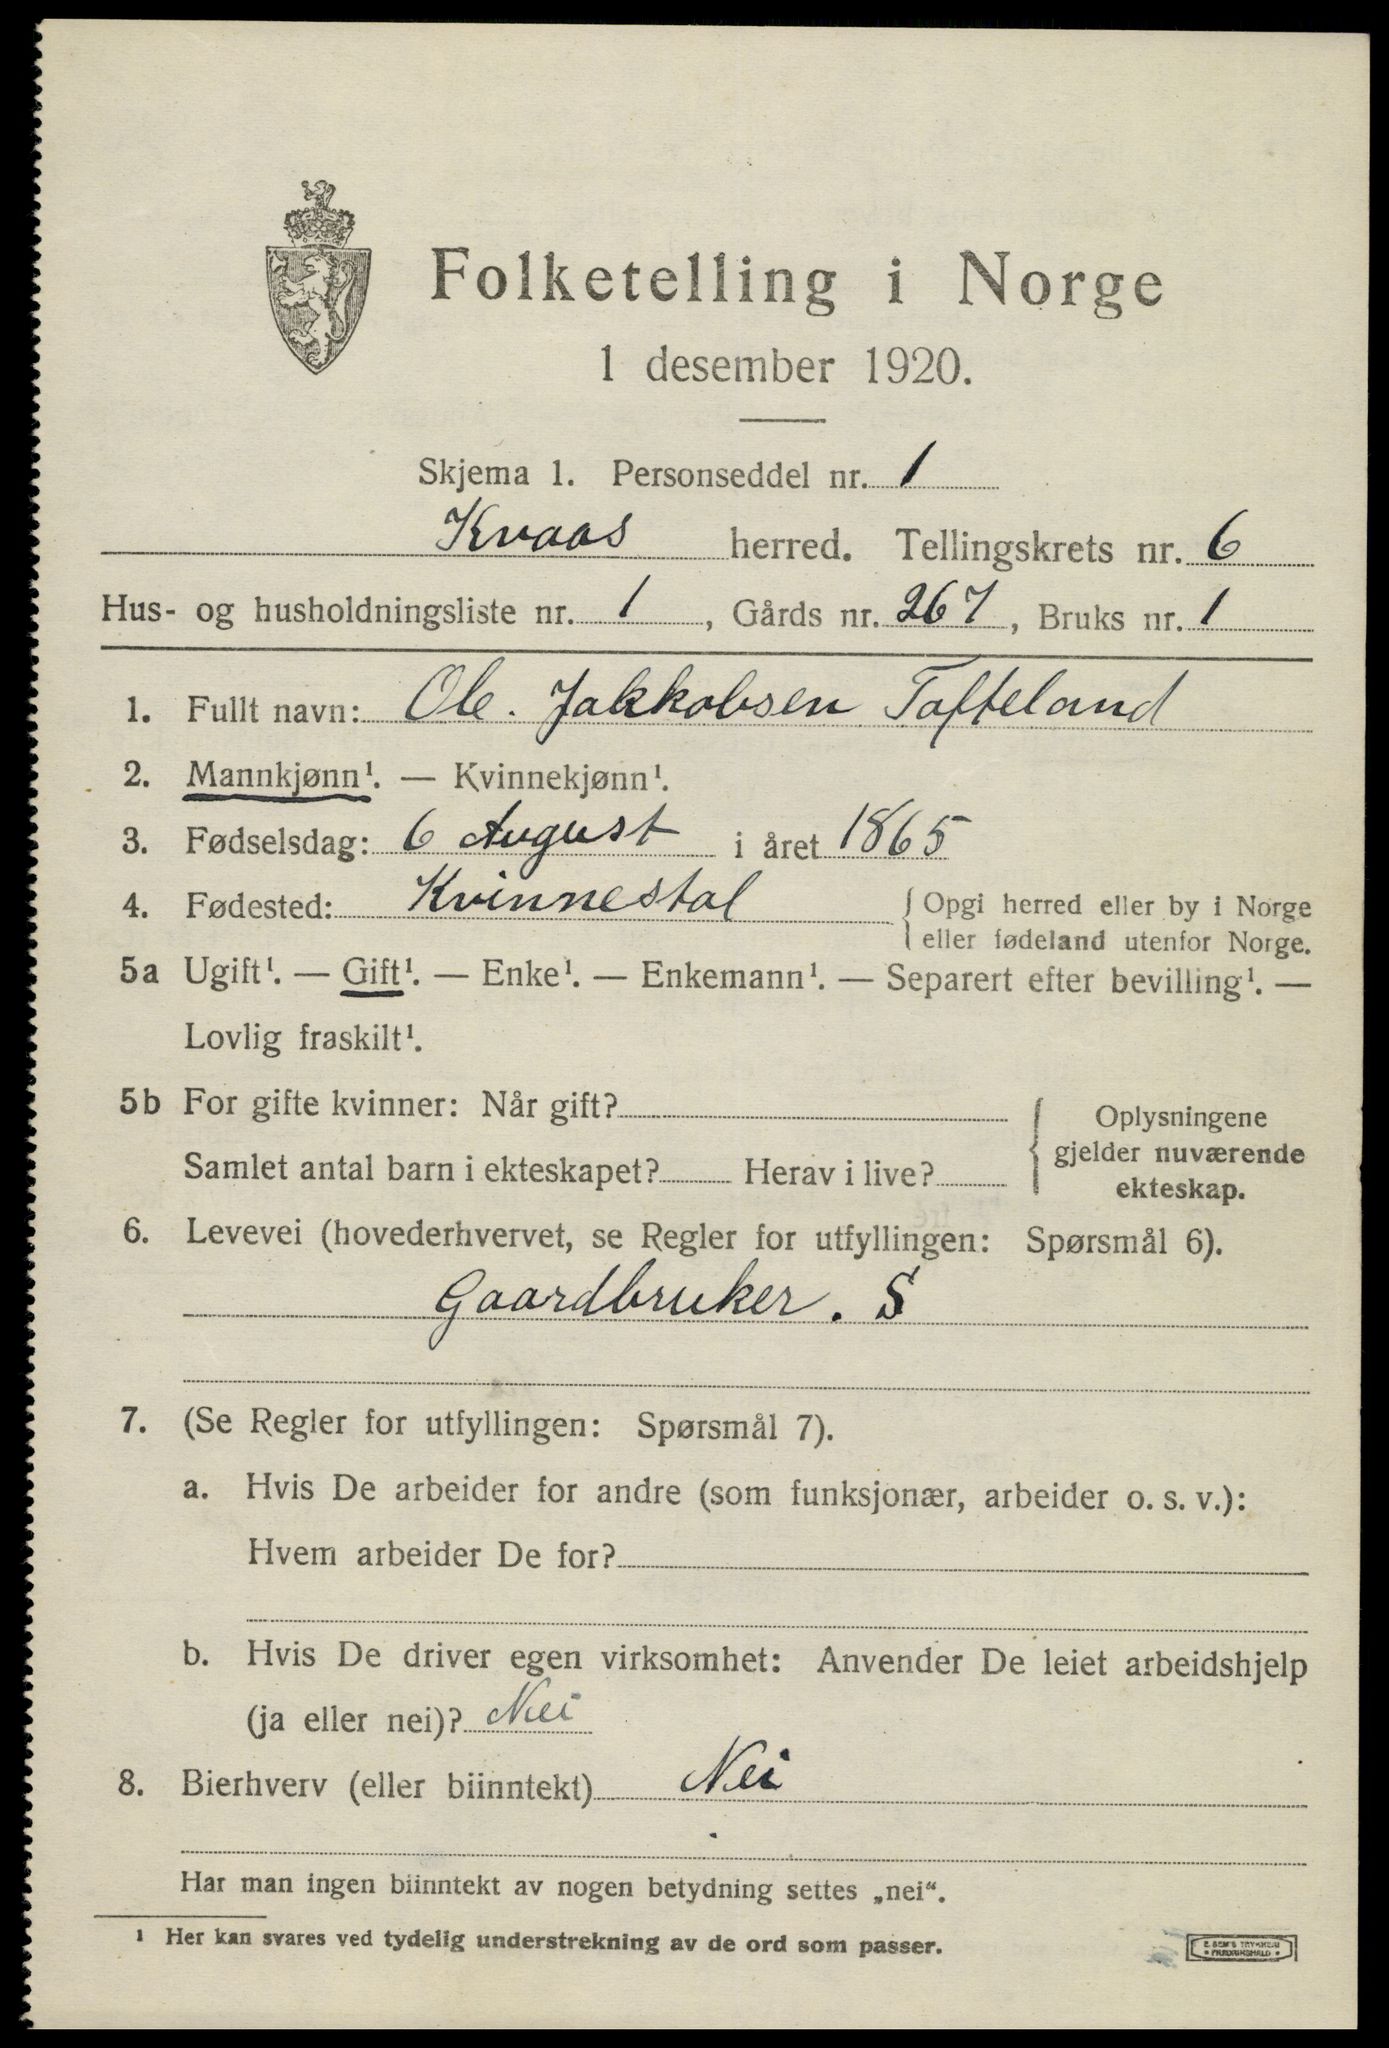 Folketelling i Norge
1 desember 1920.
Skjema 1. Personseddel nr. 1
Kvaas herred. Tellingskrets nr. 6
Hus- og husholdningsliste nr. 1, Gårds nr. 267, Bruks nr. 1
1. Fullt navn: Ole. Jakkobsen Tofteland
2. Mannkjønn¹. — Kvinnekjønn¹.
3. Fødselsdag: 6 August i året 1865
4. Fødested: Kvinnestal { Opgi herred eller by i Norge
eller fødeland utenfor Norge.
5a Ugift¹. — Gift¹. — Enke¹. — Enkemann¹. — Separert efter bevilling¹. —
Lovlig fraskilt¹.
5b For gifte kvinner: Når gift?
Samlet antal barn i ekteskapet? Herav i live?
{ Oplysningene
gjelder nuværende
ekteskap.
6. Levevei (hovederhvervet, se Regler for utfyllingen: Spørsmål 6).
Gaardbruker. S
7. (Se Regler for utfyllingen: Spørsmål 7).
a. Hvis De arbeider for andre (som funksjonær, arbeider o. s. v.):
Hvem arbeider De for?
b. Hvis De driver egen virksomhet: Anvender De leiet arbeidshjelp
(ja eller nei)? Nei
8. Bierhverv (eller biinntekt) Nei
Har man ingen biinntekt av nogen betydning settes „nei“.
¹ Her kan svares ved tydelig understrekning av de ord som passer.
E. SEM'S TRYKKERI
• FREDRIKSHALD •